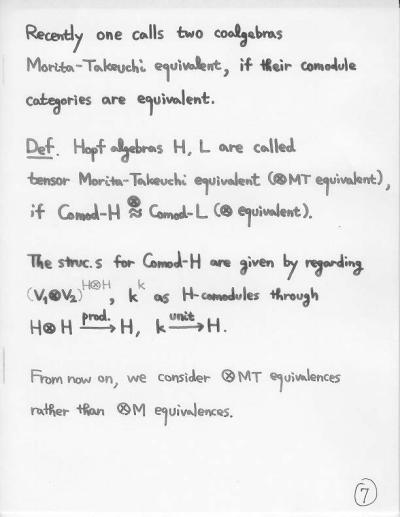 Recently one calls two coalgebras
Morita-Takeuchi equivalent, if their comodule
categories are equivalent.
Def. Hopf algebras H, L are called
tensor Morita-Takeuchi equivalent (⊗MT equivalent),
if Comod-H ≈^⊗ Comod-L (⊗ equivalent).
The struc.s for Comod-H are given by regarding
(V₁⊗V₂)^{H⊗H}, k^k as H-comodules through
H⊗H —prod.→ H, k —unit→ H.
From now on, we consider ⊗MT equivalences
rather than ⊗M equivalences.
7